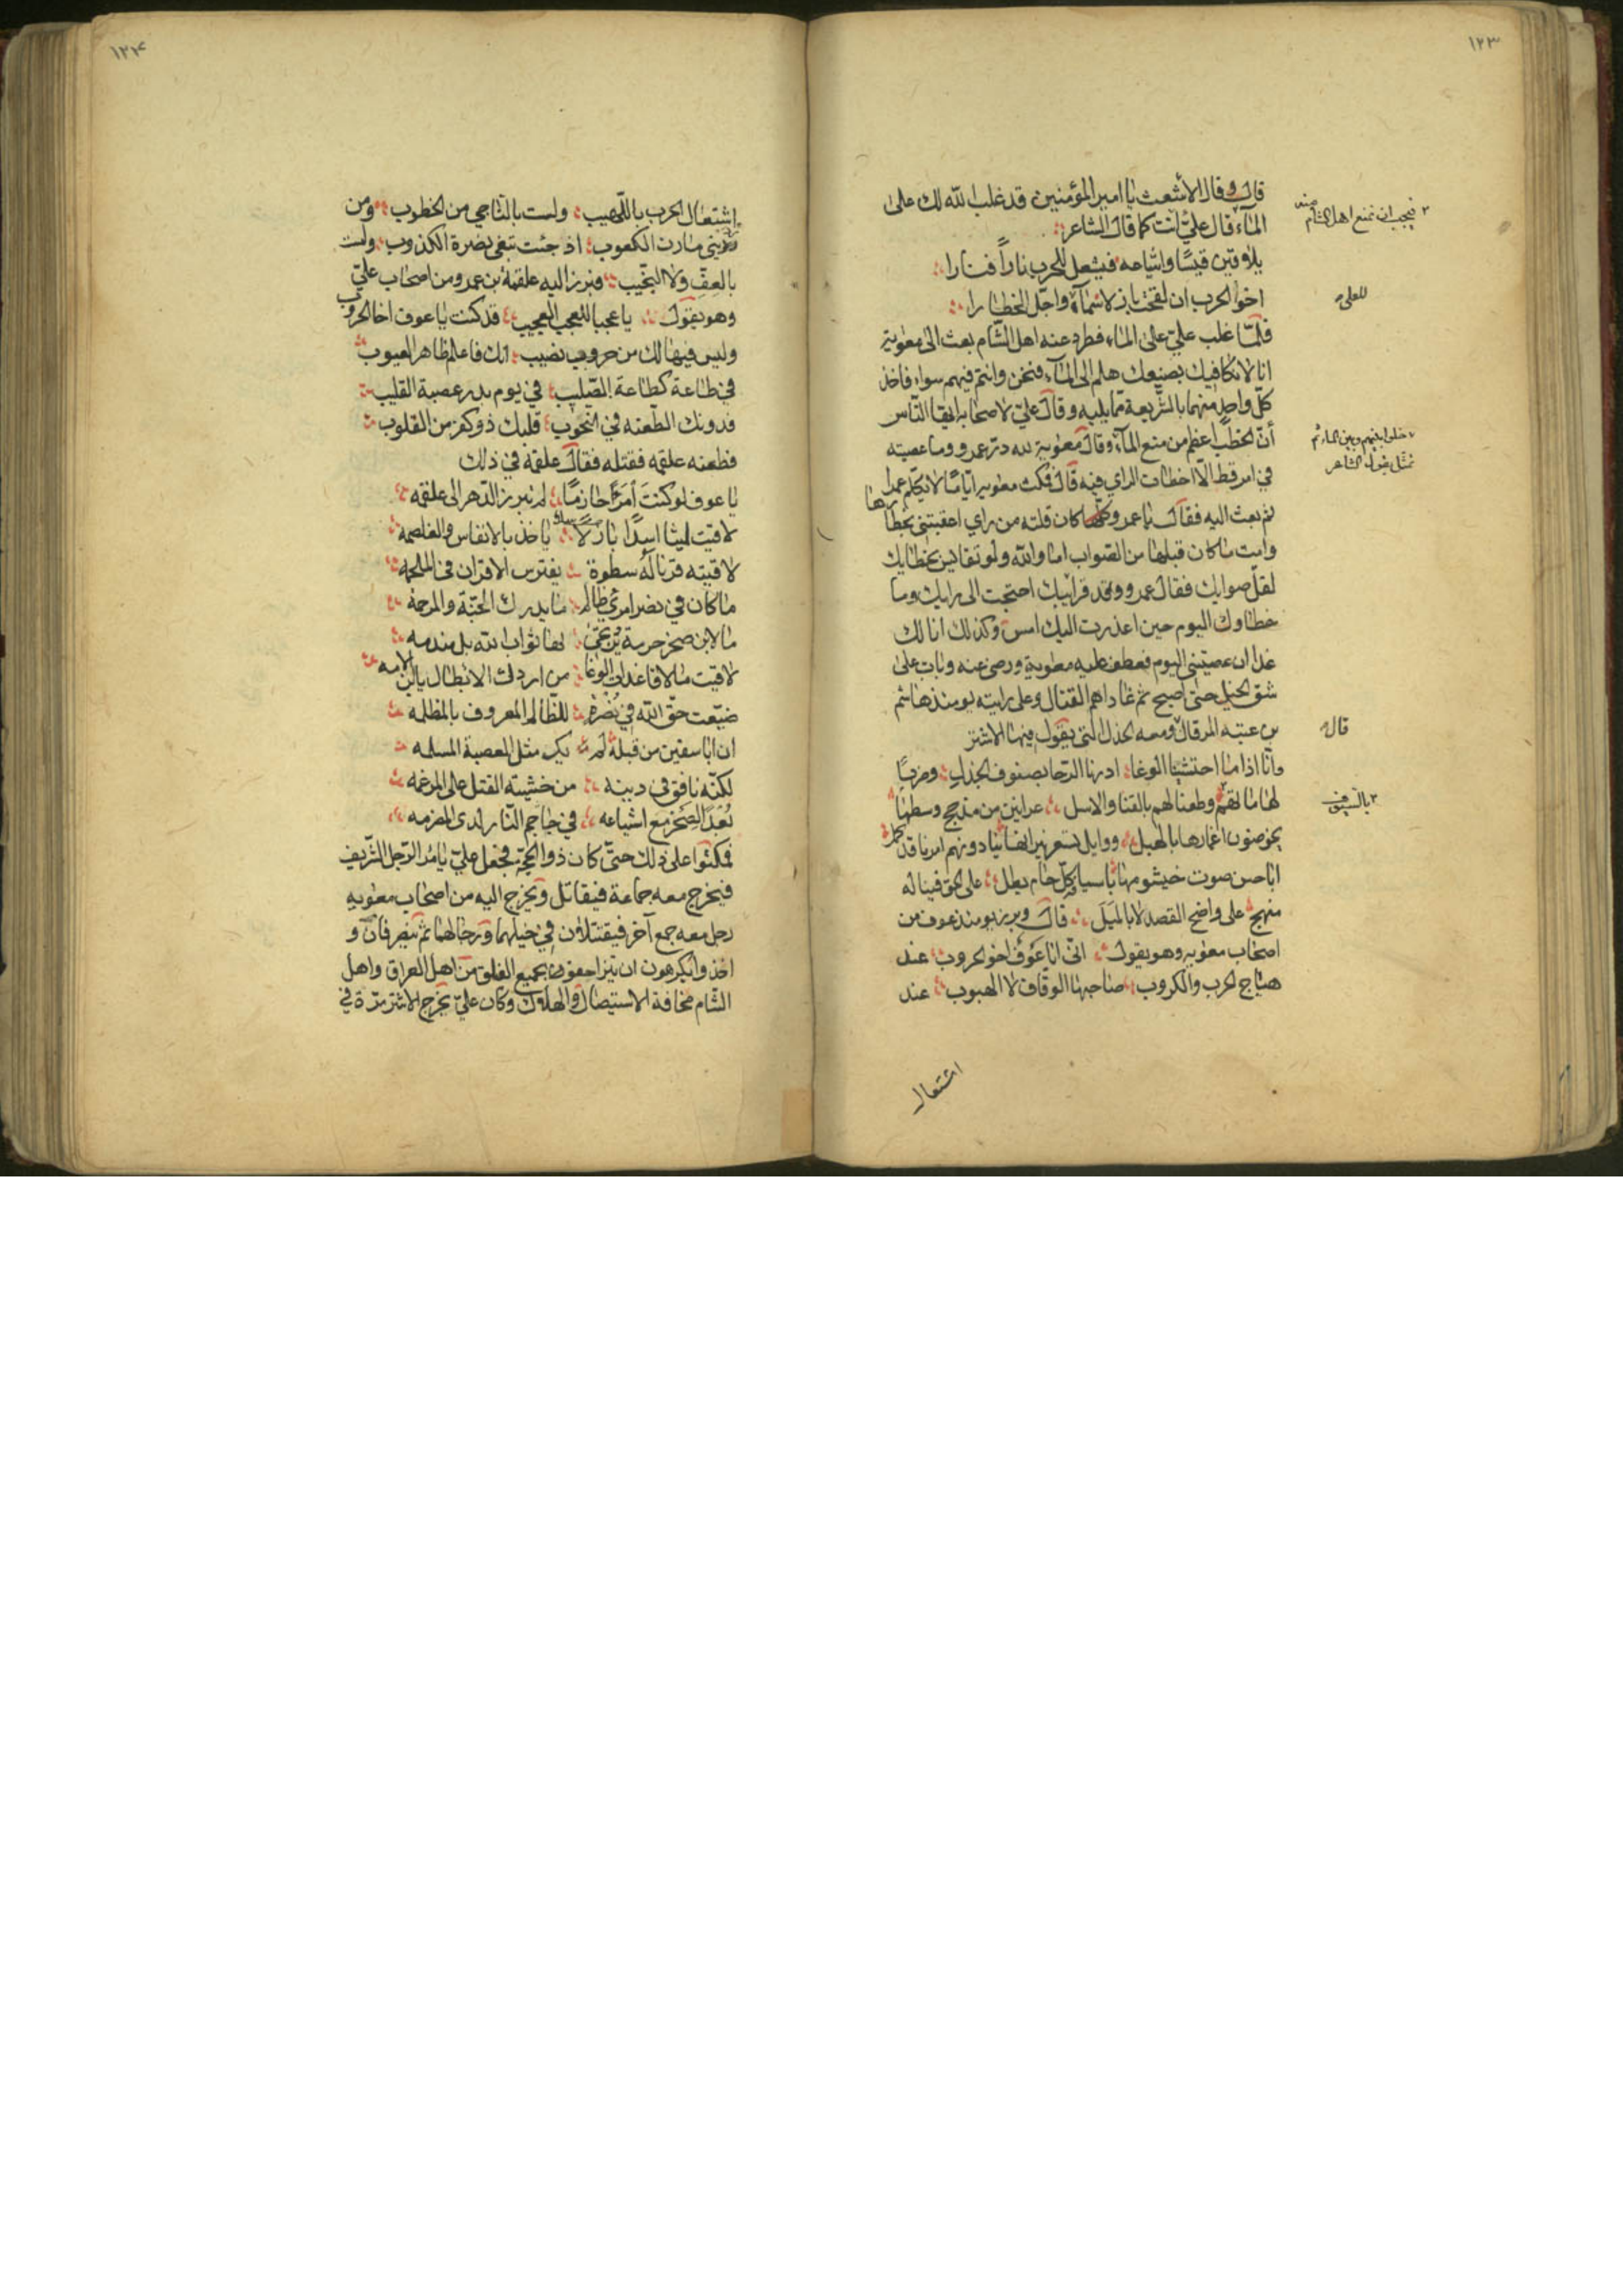 ١٢٣
قال وقال الأشعث يا امير المؤمنين قد غلب الله لك على
الماء قال علي انت كما قال الشاعر
يلاقين قيسًا واشياعه فيشعل للحرب ناراً فنارا
اخو الحرب ان لقحت بازلا سما واجل الخطارا
فلمّا غلب عليّ على الماء فطرد عنه اهل الشّام بعث الى معوية
انا لا نكافيك بصنعك هلم الى الماء فنحن وانتم فيهم سواء فاخذ
كلّ واحد منهما بالشريعة ممّا يليه وقال عليّ لاصحابه ايها النّاس
أنّ الخطب اعظم من منع الماء وقال معوية لله در عمرو وما عصيته
في امر قط الّا اخطات الراي فيه قال فمكث معوية ايامًا لا يكلم عمرا
ثم بعث اليه فقال يا عمرو كان قلته من راي اعقبتني بخطا
وامت ما كان قبلها من الصواب اما والله ولو تقايس بخطايك
لقلّ صوابك فقال عمرو وقد قرابيك احتجت الى رايك وما
خطاوك اليوم حين اعذرت اليك امس وكذلك انا لك
غدا ان عصيتني اليوم فعطف عليه معوية ورضى عنه وبات على
شق الخيل حتى اصبح ثم غاداهم القتال وعلى رايته يومئذ هاشم
بن عتبه المرقال ومعه الجدل التي يقول فيها الاشتر
وانّا اذا ما احتشينا الوغا ادرنا الرّحا بصنوف الجدل وضربًا
لهاماتهم وطعنا لهم بالقنا والاسل عرانين من مذحج وسطها
يخوضون اغمارها بالهبل ووايل تسعر نيرانها
ابا حسن صوت خيشومها باسيافه كلّ حام بطل على الحق فينا له
منهج على واضح القصد لا بالميَل قال وبرز يومئذ عوف من
اصحاب معوية وهو يقول انّي انا عوف اخو الحروب عند
هياج الحرب والكروب صاحبها الوقاف لا الهيوب عند
اشتعال
٢ فيجب ان نمنع اهل الشام
للعلى
خلوا بينهم وبين الماء ثم
تمثّل بقول الشاعر
قال
٢ بالسيوف
١٢٤
اشتعال الحرب باللّهيب ولست بالنّاجي من الخطوب ومن
رديني مارن الكعوب اذ جئت تبغي نصرة الكذوب ولست
بالعفّ ولا النجيب فبرز اليه علقمة بن عمرو من اصحاب عليّ
وهو يقول يا عجبا للعجب العجيب قد كنت يا عوف اخا الحروب
وليس فيها لك من حروب نصيب انك فاعلم ظاهر العيوب
في طاعة كطاعة الصّليب في يوم بدر عصبة القليب
فدونك الطّعنه في النحوب قلبك ذو كفر من القلوب
فطعنه علقمه فقتله فقال علقمة في ذلك
يا عوف لو كنتَ أمرءًا حازمًا لم تبرز الدّهر الى علقمه
لاقيت ليثا اسدًا باسلًا ياخذ بالانفاس والغلصمه
لاقيته قرنا له سطوة يفترس الاقران في الملحمه
ما كان في نصر امرئ ظالم ما يدرك الجنّة والمرحمة
ما لابن صخر حرمة ترتجى لها ثواب الله بل مندمه
لاقيت ما لاقا غداة الوغا من ادرك الابطال يا ابن الامه
ضيّعت حقّ الله في نُصْرَةٍ للظّالم المعروف بالمظلمه
ان ابا سفين من قبله لم يكن مثل العصبة المسلمه
لكنّه نافق في دينه من خشية القتل على المرغمه
بُعْدًا لصخر مع اشياعه في جاحم النّار لدى المضرمه
فمكثوا على ذلك حتّى كان ذو الحجّة فجعل عليّ يامُر الرّجل الشّريف
فيخرج معه جماعة فيقاتل ويخرج اليه من اصحاب معوية
رجل معه جمع آخر فيقتتلان في خيلهما ورجالهما ثم ينصرفان و
اخذوا يكرهون ان يتزاحفون بجميع الفيلق من اهل العراق واهل
الشّام مخافة الاستيصال والهلاك وكان عليّ يخرج الاشتر مرّة في